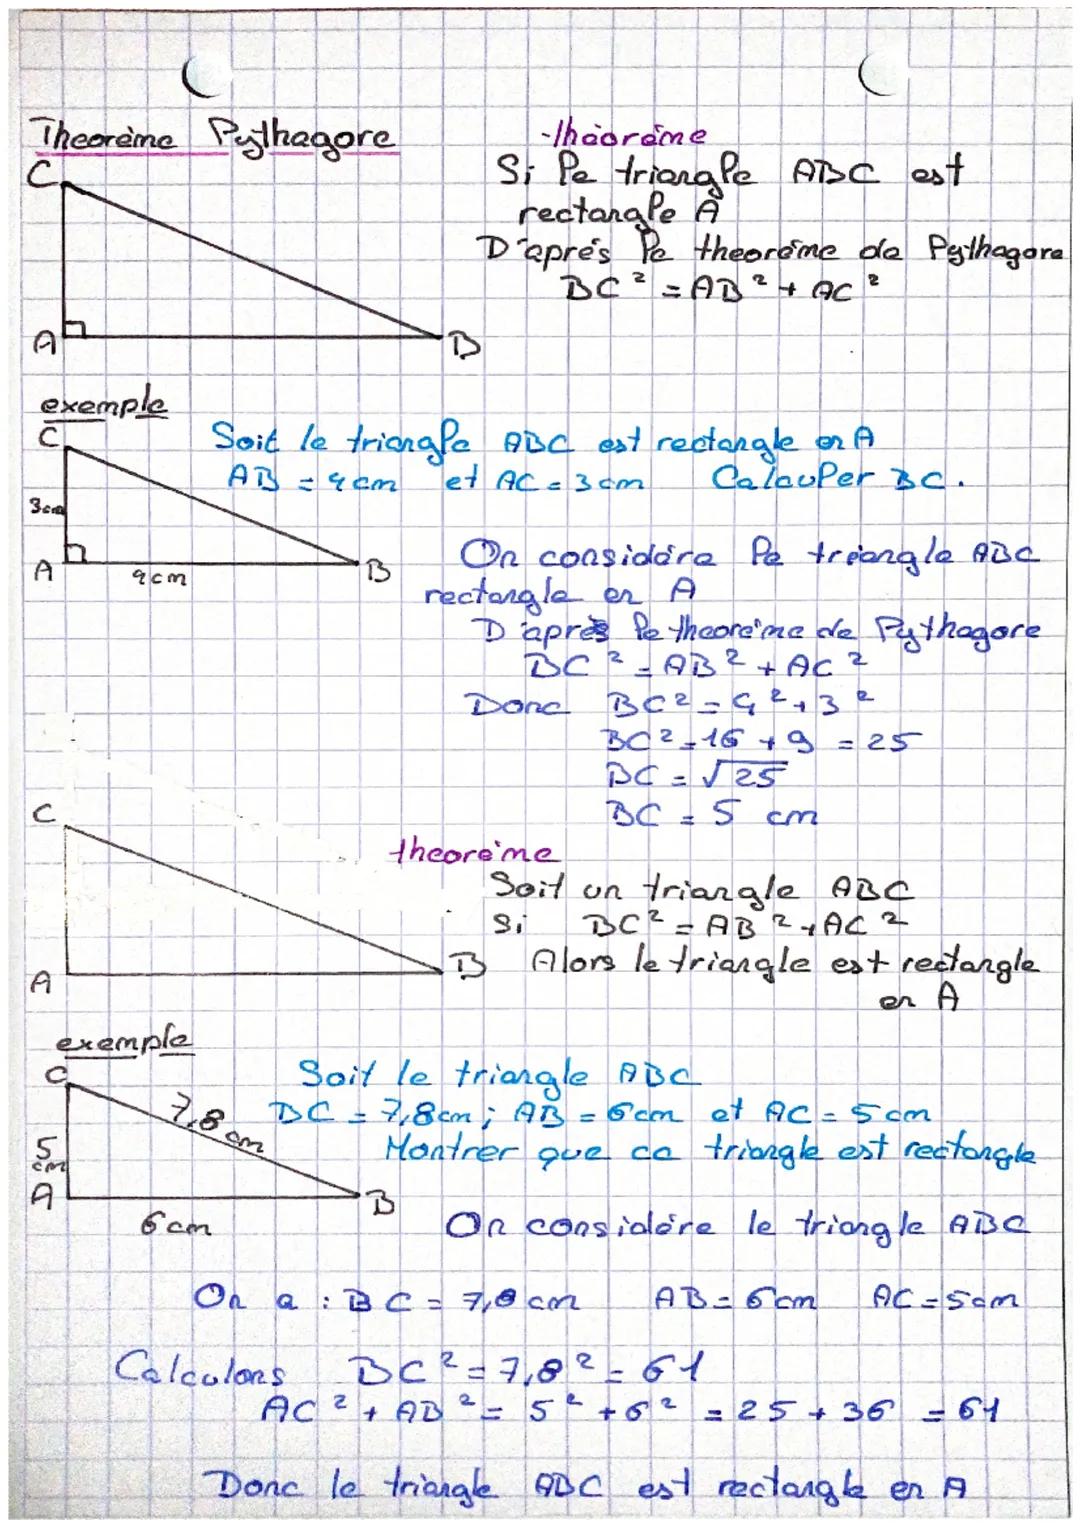 Theorème Pythagore
C
A
B
théorème
Si le triangle ABC est
rectangle A
D'aprés le theoréme de Pythagore
BC² = AB² + AC²
exemple
C
3cm
A
4cm
B
Soit le triangle ABC est rectangle en A
AB = 4cm et AC = 3cm Calculer BC.
On considére le triangle ABC
rectangle en A
D'aprés le theoréme de Pythagore
BC² = AB² + AC²
Donc BC² = 4² + 3²
BC² = 16 + 9 = 25
BC = √25
BC = 5 cm
C
A
B
theoréme
Soit un triangle ABC
Si BC² = AB² + AC²
Alors le triangle est rectangle
en A
exemple
C
7,8 cm
5
cm
A
6cm
B
Soit le triangle ABC
BC = 7,8cm ; AB = 6cm et AC = 5cm
Montrer que ce triangle est rectangle
On considére le triangle ABC
On a : BC = 7,8cm AB = 6cm AC = 5cm
Calculons BC² = 7,8² = 61
AC² + AB² = 5² + 6² = 25 + 36 = 61
Donc le triangle ABC est rectangle en A